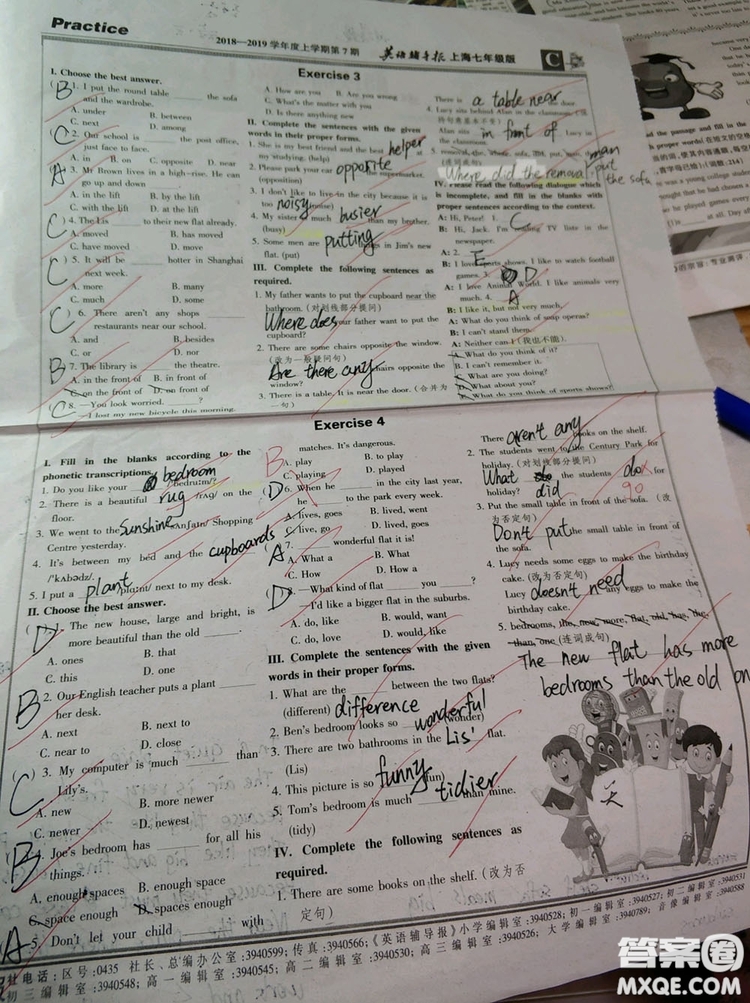 Practice
2018—2019 学年度上学期第 7 期
英语辅导报 上海七年级版
C
Exercise 3
I. Choose the best answer.
( B ) 1. I put the round table ____ the sofa
and the wardrobe.
A. under B. between
C. next D. among
( C ) 2. Our school is ____ the post office,
just face to face.
A. in B. on C. opposite D. near
( A ) 3. Mr Brown lives in a high-rise. He can
go up and down ____.
A. in the lift B. by the lift
C. with the lift D. at the lift
( C ) 4. The Lis ____ to their new flat already.
A. moved B. has moved
C. have moved D. move
( C ) 5. It will be ____ hotter in Shanghai
next week.
A. more B. many
C. much D. some
( C ) 6. There aren't any shops ____
restaurants near our school.
A. and B. besides
C. or D. nor
( B ) 7. The library is ____ the theatre.
A. in the front of B. in front of
C. on the front of D. on front of
( C ) 8. —You look worried. ____?
—I lost my new bicycle this morning.
A. How are you B. Are you wrong
C. What's the matter with you
D. Is there anything new
II. Complete the sentences with the given
words in their proper forms.
1. She is my best friend and the best helper
my studying. (help)
2. Please park your car opposite the supermarket.
(opposition)
3. I don't like to live in the city because it is
too noisy
4. My sister much busier than my brother.
(busy)
5. Some men are putting in Jim's new
flat. (put)
III. Complete the following sentences as
required.
1. My father wants to put the cupboard near the
bathroom. (对划线部分提问)
Where does your father want to put the
cupboard?
2. There are some chairs opposite the window.
(改为一般疑问句)
Are there any chairs opposite the
window?
3. There is a table. It is near the door. (合并为
一句)
There is a table near door.
4. Lucy sits behind Alan in the classroom.
Alan sits in front of Lucy in
the classroom.
5.
Where did the removal man put the sofa
IV. Please read the following dialogue which
is incomplete, and fill in the blanks with
proper sentences according to the context.
A: Hi, Peter! 1. C
B: Hi, Jack. I'm reading TV lists in the
newspaper.
A: 2. E
B: I love sports shows. I like to watch football
games. 3. D
A: I love Animal World. I like animals very
much. 4. A
B: I like it, but not very much.
A: What do you think of soap operas?
B: I can't stand them.
A: Neither can I (我也不能).
A. What do you think of it?
B. I can't remember it.
C. What are you doing?
D. What about you?
E. What do you think of sports shows?
Exercise 4
I. Fill in the blanks according to the
phonetic transcriptions.
1. Do you like your bedroom /'bedruːm/?
2. There is a beautiful rug /rʌg/ on the
floor.
3. We went to the Sunshine /'sʌnʃaɪn/ Shopping
Centre yesterday.
4. It's between my bed and the cupboards
/'kʌbədz/.
5. I put a plant /plɑːnt/ next to my desk.
II. Choose the best answer.
( D ) 1. The new house, large and bright, is
more beautiful than the old ____.
A. ones B. that
C. this D. one
( B ) 2. Our English teacher puts a plant ____
her desk.
A. next B. next to
C. near to D. close
( C ) 3. My computer is much ____ than
Lily's.
A. new B. more newer
C. newer D. newest
( B ) 4. Joe's bedroom has ____ for all his
things.
A. enough spaces B. enough space
C. space enough D. spaces enough
( A ) 5. Don't let your child ____ with
B
matches. It's dangerous.
A. play B. to play
C. playing D. played
( D ) 6. When he ____ in the city last year,
he ____ to the park every week.
A. lives, goes B. lived, went
C. live, go D. lived, goes
( A ) 7. ____ wonderful flat it is!
A. What a B. What
C. How D. How a
( D ) 8. —What kind of flat ____ you ____?
—I'd like a bigger flat in the suburbs.
A. do, like B. would, want
C. do, love D. would, like
III. Complete the sentences with the given
words in their proper forms.
1. What are the ____ between the two flats?
(different) difference
2. Ben's bedroom looks so wonderful (wonder)
3. There are two bathrooms in the Lis' flat.
(Lis)
4. This picture is so funny (fun)
5. Tom's bedroom is much tidier than mine.
(tidy)
IV. Complete the following sentences as
required.
1. There are some books on the shelf. (改为否
定句)
There aren't any books on the shelf.
2. The students went to the Century Park for
holiday. (对划线部分提问)
What the students do for
holiday? did
go
3. Put the small table in front of the sofa. (改
为否定句)
Don't put the small table in front of
the sofa.
4. Lucy needs some eggs to make the birthday
cake. (改为否定句)
Lucy doesn't need any eggs to make the
birthday cake.
5. bedrooms, the, new, more, flat, old, has, the,
than, one (连词成句)
The new flat has more
bedrooms than the old on
社电话: 区号:0435 社长、总编办公室:3940599; 传真:3940566; 《英语辅导报》小学编辑室:3940528; 初一编辑室:3940527; 初二编辑室:3940531
初三编辑室:3940548; 高一编辑室:3940545; 高二编辑室:3940530; 高三编辑室:3940526, 大学编辑室:3940789; 音像编辑室:3940588
答案圈
MXQE.COM